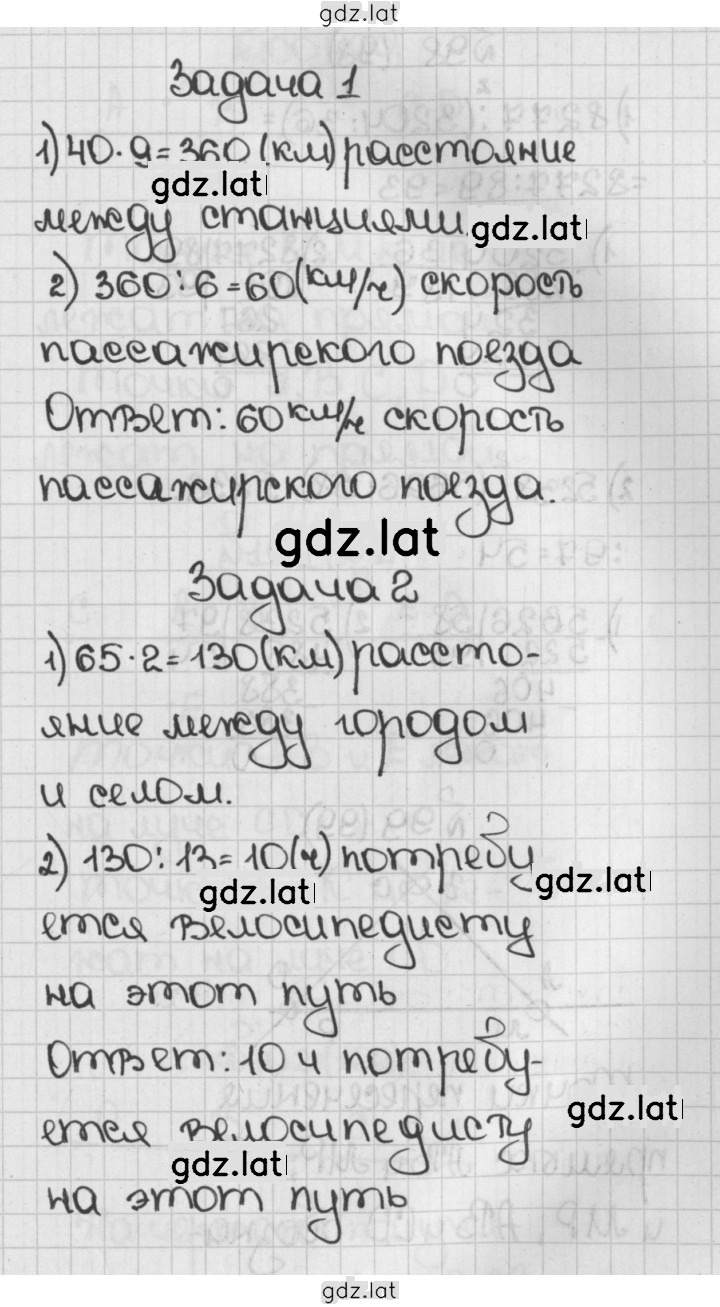 gdz.lat
Задача 1
1) 40·9=360 (км) расстояние
gdz.lat
между станциями.
gdz.lat
2) 360:6=60(км/ч) скорость
пассажирского поезда
Ответ: 60 км/ч скорость
пассажирского поезда.
gdz.lat
Задача 2
1) 65·2=130(км) рассто-
яние между городом
и селом.
2) 130:13=10(ч) потребу
gdz.lat
gdz.lat
ется велосипедисту
на этот путь
Ответ: 10 ч потребу-
gdz.lat
ется велосипедисту
gdz.lat
на этот путь
gdz.lat